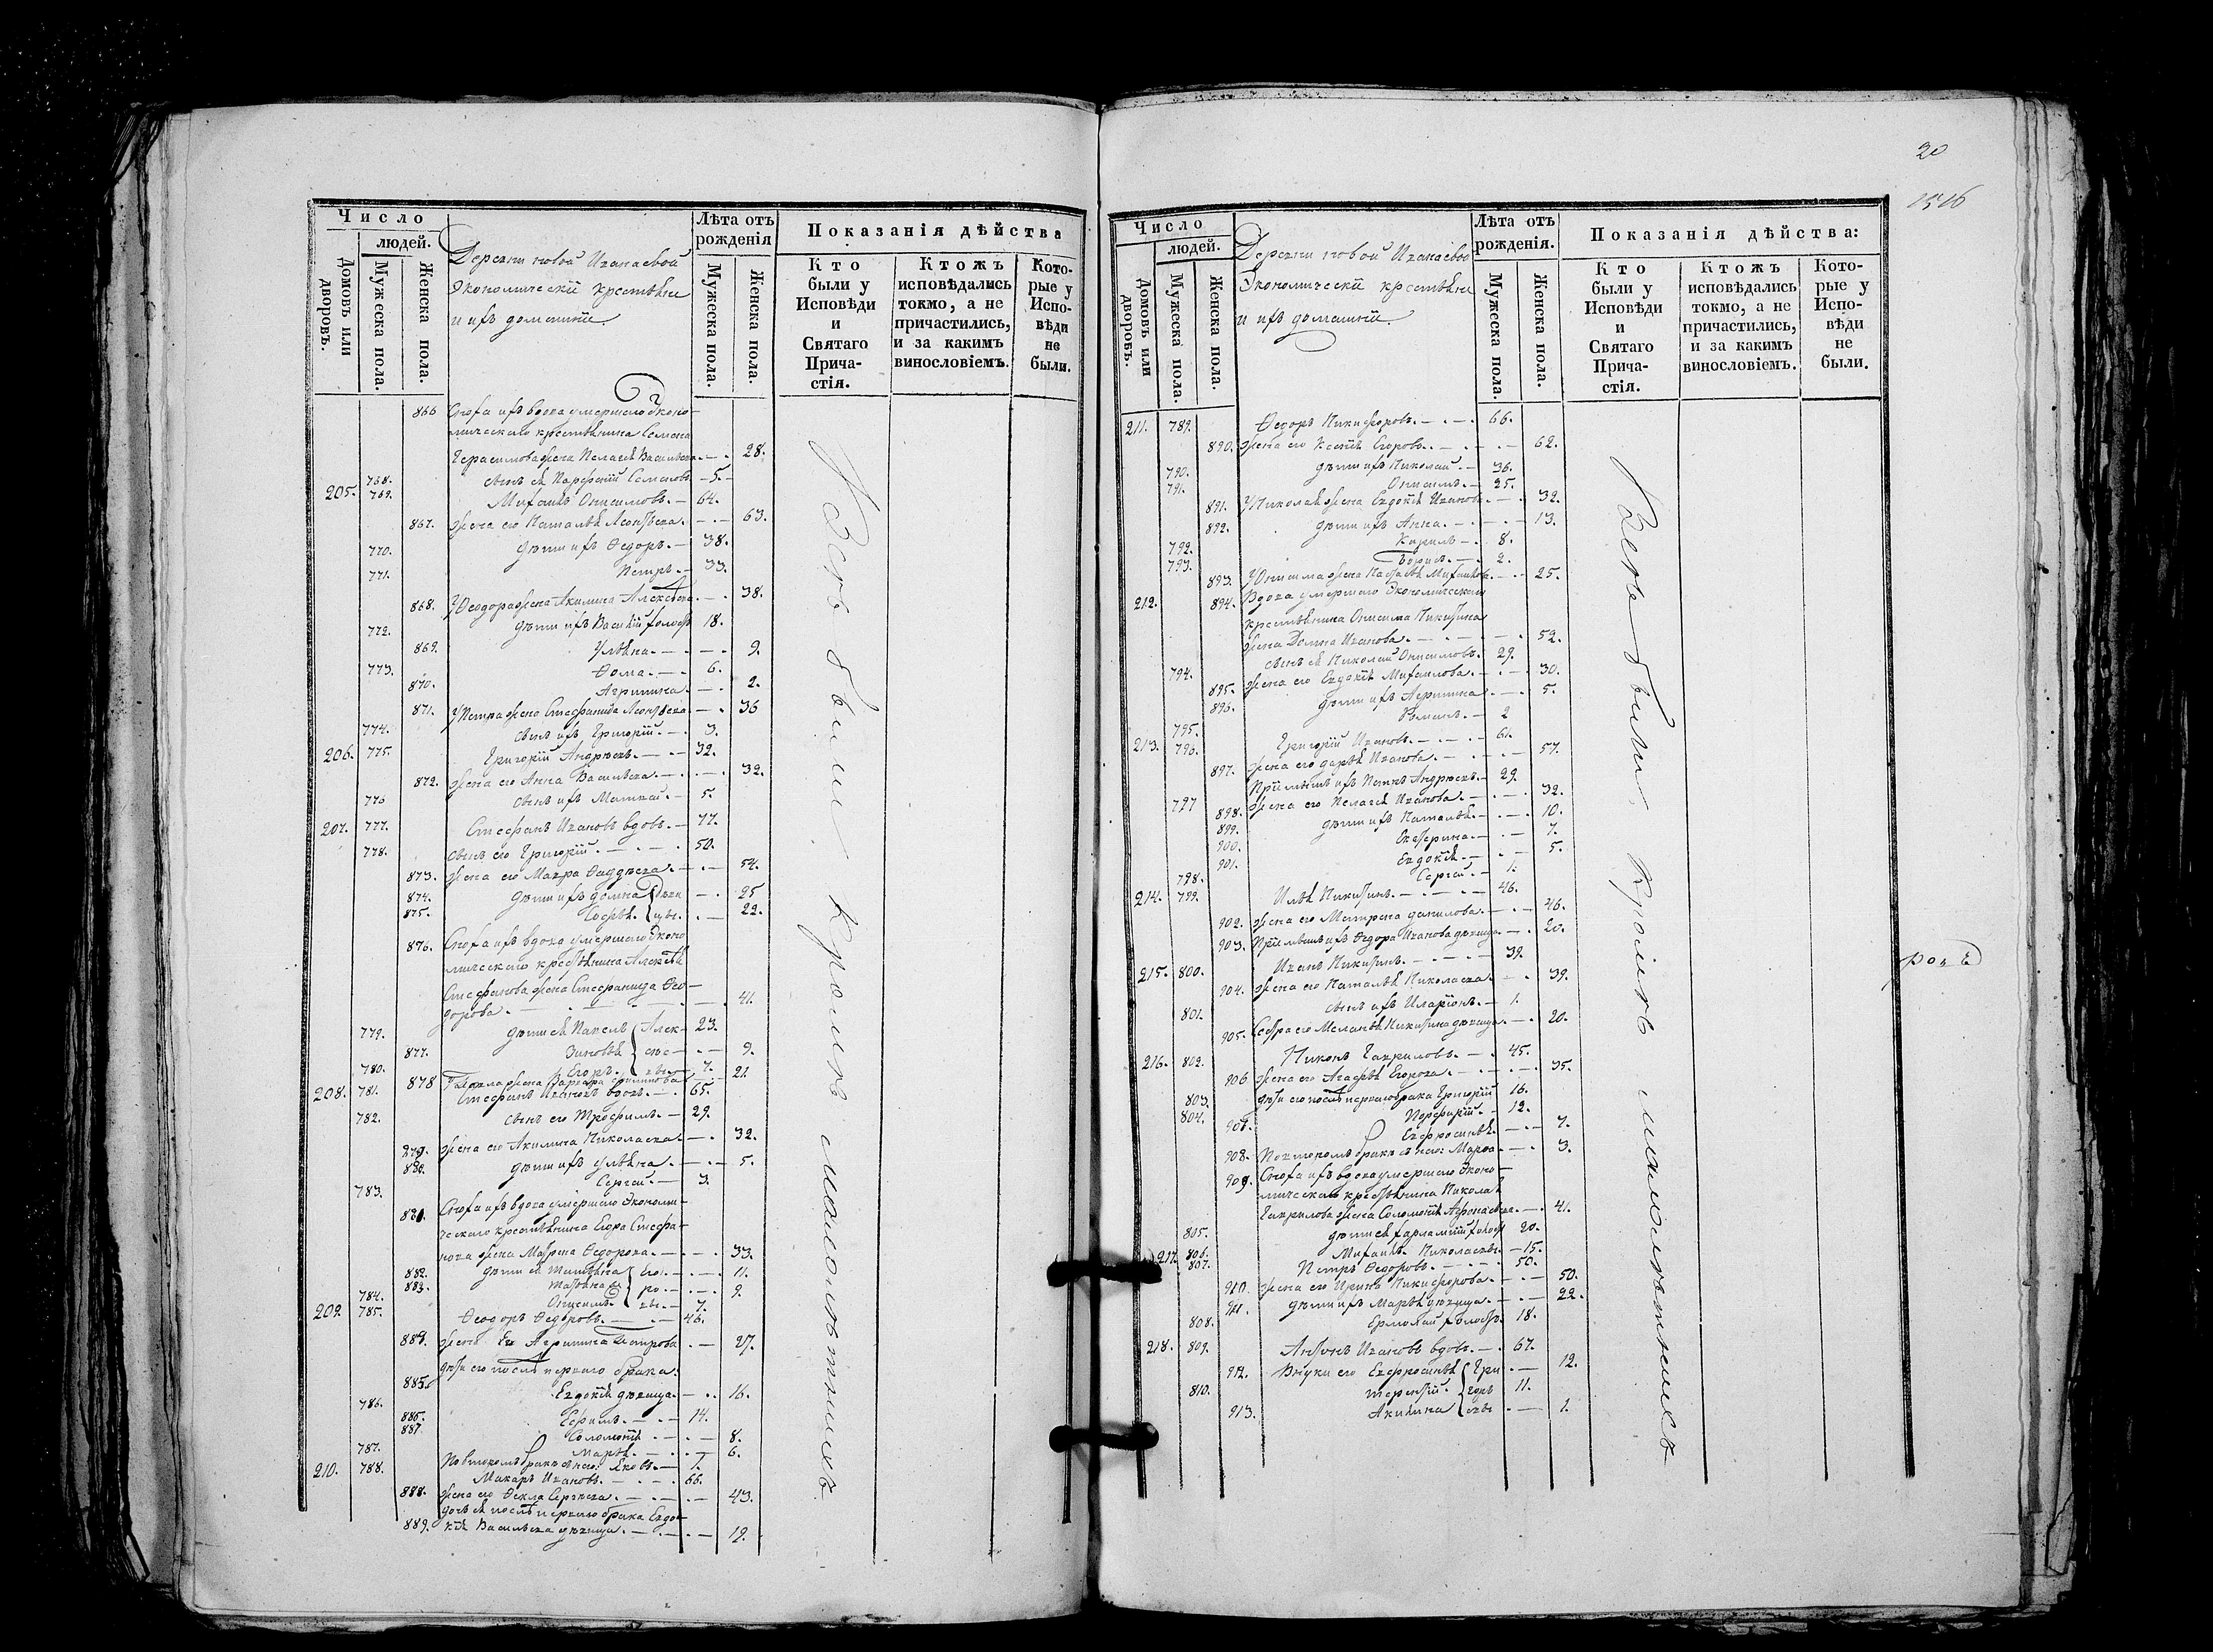 Число
людей.
Домовъ или дворовъ.
Мужеска пола.
Женска пола.
Деревни новой
Экономическiи крестьяне
и ихъ домашнiе.
Лѣта отъ рожденiя
Мужеска пола.
Женска пола.
Показанiя дѣйства
Кто были у Исповѣди и Святаго Причастiя.
Ктожъ исповѣдались токмо, а не причастились, и за какимъ винословiемъ.
Которые у Исповѣди не были.
866 Сноха ихъ вдова умершаго Эконо-
мическаго крестьянина Семена
Герасимова жена Пелагея Васильева 28.
768. сынъ ея Парфенiй Семеновъ 5.
205. 769. Михаилъ Онисимовъ. 64.
867. жена его Наталья 63.
770. дѣти ихъ Ѳедоръ. 38.
771. Петръ. 33.
868. У Ѳеодора жена Акилина Алексѣева 38.
772. дѣти ихъ Василiй холостъ 18.
869. Ульяна. 9.
773. Ѳома. 6.
870. Агрипина. 2.
871. У Петра жена Стефанида 36
774. сынъ ихъ Григорiй. 3.
206. 775. Григорiй Андреевъ. 32.
872. жена его Анна Васильева. 32.
776 сынъ ихъ Матвей. 5.
207. 777. Стефанъ Ивановъ вдовъ. 77.
778. сынъ его Григорiй. 50.
873. жена его Мавра 54.
874. дѣти ихъ Домна дѣви 25
875. Софья. цы. 22.
876. Сноха ихъ вдова умершаго Эконо
мическаго крестьянина Алексѣя
Стефанова жена Стефанида Ѳео-
дорова. 41.
779. дѣти ея Павелъ Алек- 23.
877. Зиновья сѣе- 9.
780. Егоръ. вы. 7.
878 У Павла жена Варвара 21
208. 781. Стефанъ Ивановъ вдовъ. 65.
782. сынъ его Трофимъ. 29.
879. жена его Акилина Николаева. 32.
880. дѣти ихъ Ульяна. 5.
783. Сергей. 3.
881. Сноха ихъ вдова умершаго Экономи-
ческаго крестьянина Егора Стефа-
нова жена Ѳедорова. 33.
882. дѣти ея Его- 11.
883. ро- 9.
784. Онисимъ. вы. 7.
209. 785. Ѳеодоръ Ѳедоровъ. 46.
884. жена Ев Агрипина Петрова 27.
дѣти его послѣ перваго брака:
885. Евдокiя дѣвица. 16.
786. Ефимъ. 14.
886. Соломонiя 8.
887. Марья. 6.
787. Яковъ. 1.
210. 788. Макаръ Ивановъ. 66.
888. жена его Ѳекла Сергѣева. 43.
дочь ея послѣ перваго брака Евдо-
889. кiя Васильева дѣвица. 19.
Всѣ были кромѣ малолѣтныхъ
20
1516
Число
людей.
Домовъ или дворовъ.
Мужеска пола.
Женска пола.
Деревни новой
Экономическiи крестьяне
и ихъ домашнiе.
Лѣта отъ рожденiя.
Мужеска пола
Женска пола.
Показанiя дѣйства:
Кто были у Исповѣди и Святаго Причастiя.
Ктожъ исповѣдались токмо, а не причастились, и за какимъ винословiемъ.
Которые у Исповѣди не были.
211. 789. Ѳедоръ Никифоровъ. 66.
890. жена его Ксенiя Егорова. 62.
790. дѣти ихъ Николай. 36.
791. Онисимъ. 25.
891. У Николая жена Евдокiя Иванова. 32.
892. дѣти ихъ Анна. 13.
792. Кирилъ 8.
793. Борисъ. 2.
893. У Онисима жена Наталья Михайлова. 25.
212. 894. Вдова умершаго Экономическаго
крестьянина Онисима Никитина
жена Домна Иванова. 52.
794. сынъ ея Николай Онисимовъ. 29.
895. жена его Евдокiя Михайлова. 30.
896. дѣти ихъ Агрипина. 5.
795. Романъ. 2
213. 796. Григорiй Ивановъ. 61.
897. жена его Дарья Иванова. 57.
797 Прiимышъ ихъ Петръ Андреевъ. 29.
898. жена его Пелагея Иванова. 32.
899. дѣти ихъ Наталья. 10.
900. Екатерина. 7.
901. Евдокiя. 5.
798. Сергей. 1.
214. 799. Илья Никитинъ. 46.
902. жена его Матрона Данилова. 46.
903. Прiимышъ ихъ Ѳедора Иванова дѣвица. 20.
215. 800. Иванъ Никитинъ. 39.
904. жена его Наталья Николаева. 39.
801. сынъ ихъ Иларiонъ. 1.
905. Сестра его Меланья Никитина дѣвица. 20.
216. 802. Никонъ Гавриловъ. 45.
906 жена его Агафья Егорова. 35.
803. дѣти его послѣ перваго брака Григорiй 16.
804. Порфирiй. 12.
907. Евфросинья. 7.
908. Марѳа. 3.
909. Сноха ихъ вдова умершаго Эконо-
мическаго крестьянина Николая
Гаврилова жена Соломонiя Афонасьева. 41.
805. дѣти ея холостъ 20.
806. Михаилъ Николаевы. 15.
217. 807. Петръ Ѳедоровъ. 50.
910. жена его Ирина Никифорова. 50.
911. дѣти ихъ Марья дѣвица. 22.
808. Ермолай холостъ. 18.
218. 809. Антонъ Ивановъ вдовъ. 67.
912. Внуки его Евфросинья Гри 12.
810. Терентiй. горь 11.
913. Акилина евы 1.
Всѣ были кромѣ малолѣтныхъ